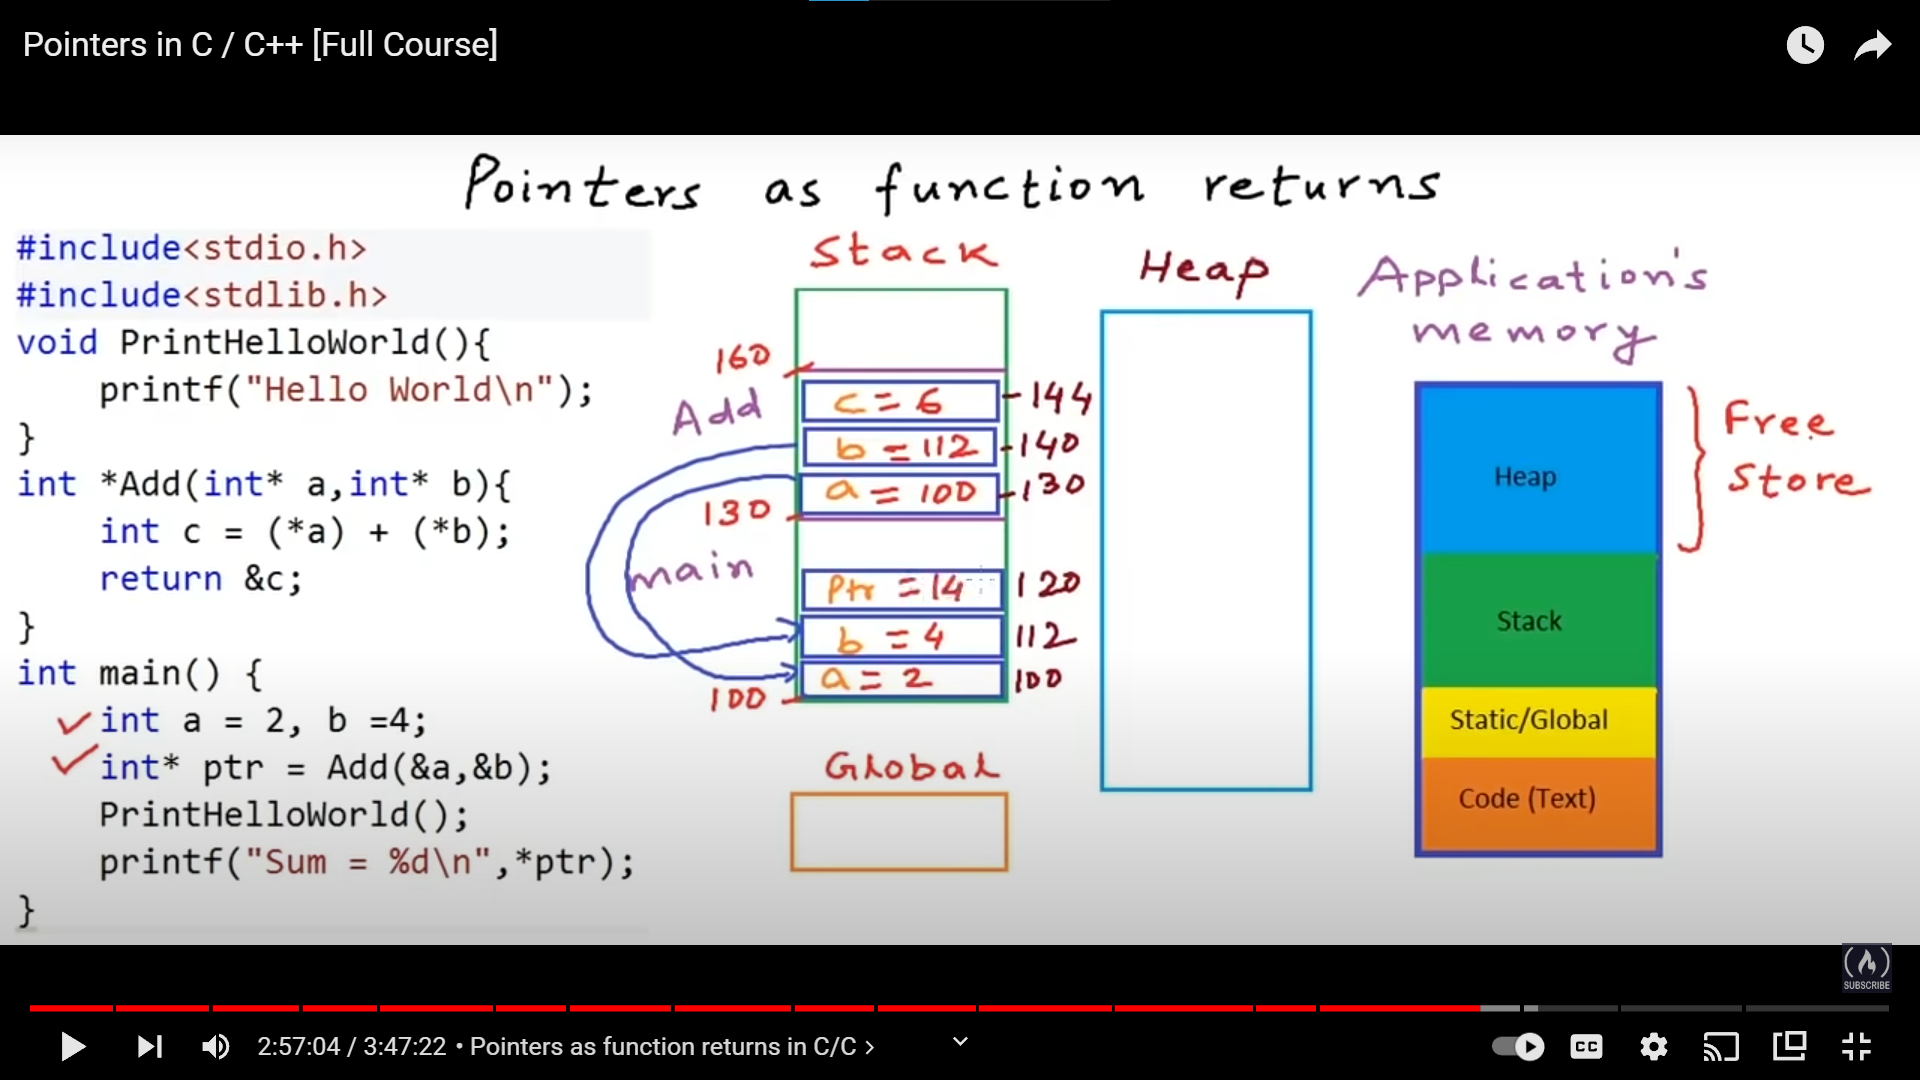 Pointers in C / C++ [Full Course]
Pointers as function returns
#include<stdio.h>
#include<stdlib.h>
void PrintHelloWorld(){
printf("Hello World\n");
}
int *Add(int* a,int* b){
int c = (*a) + (*b);
return &c;
}
int main() {
int a = 2, b =4;
int* ptr = Add(&a,&b);
PrintHelloWorld();
printf("Sum = %d\n",*ptr);
}
Stack
160
Add
c = 6
144
b = 112
140
a = 100
130
130
main
Ptr = 14
120
b = 4
112
a = 2
100
100
Global
Heap
Application's
memory
Heap
Stack
Static/Global
Code (Text)
Free
Store
SUBSCRIBE
2:57:04 / 3:47:22 • Pointers as function returns in C/C >
CC